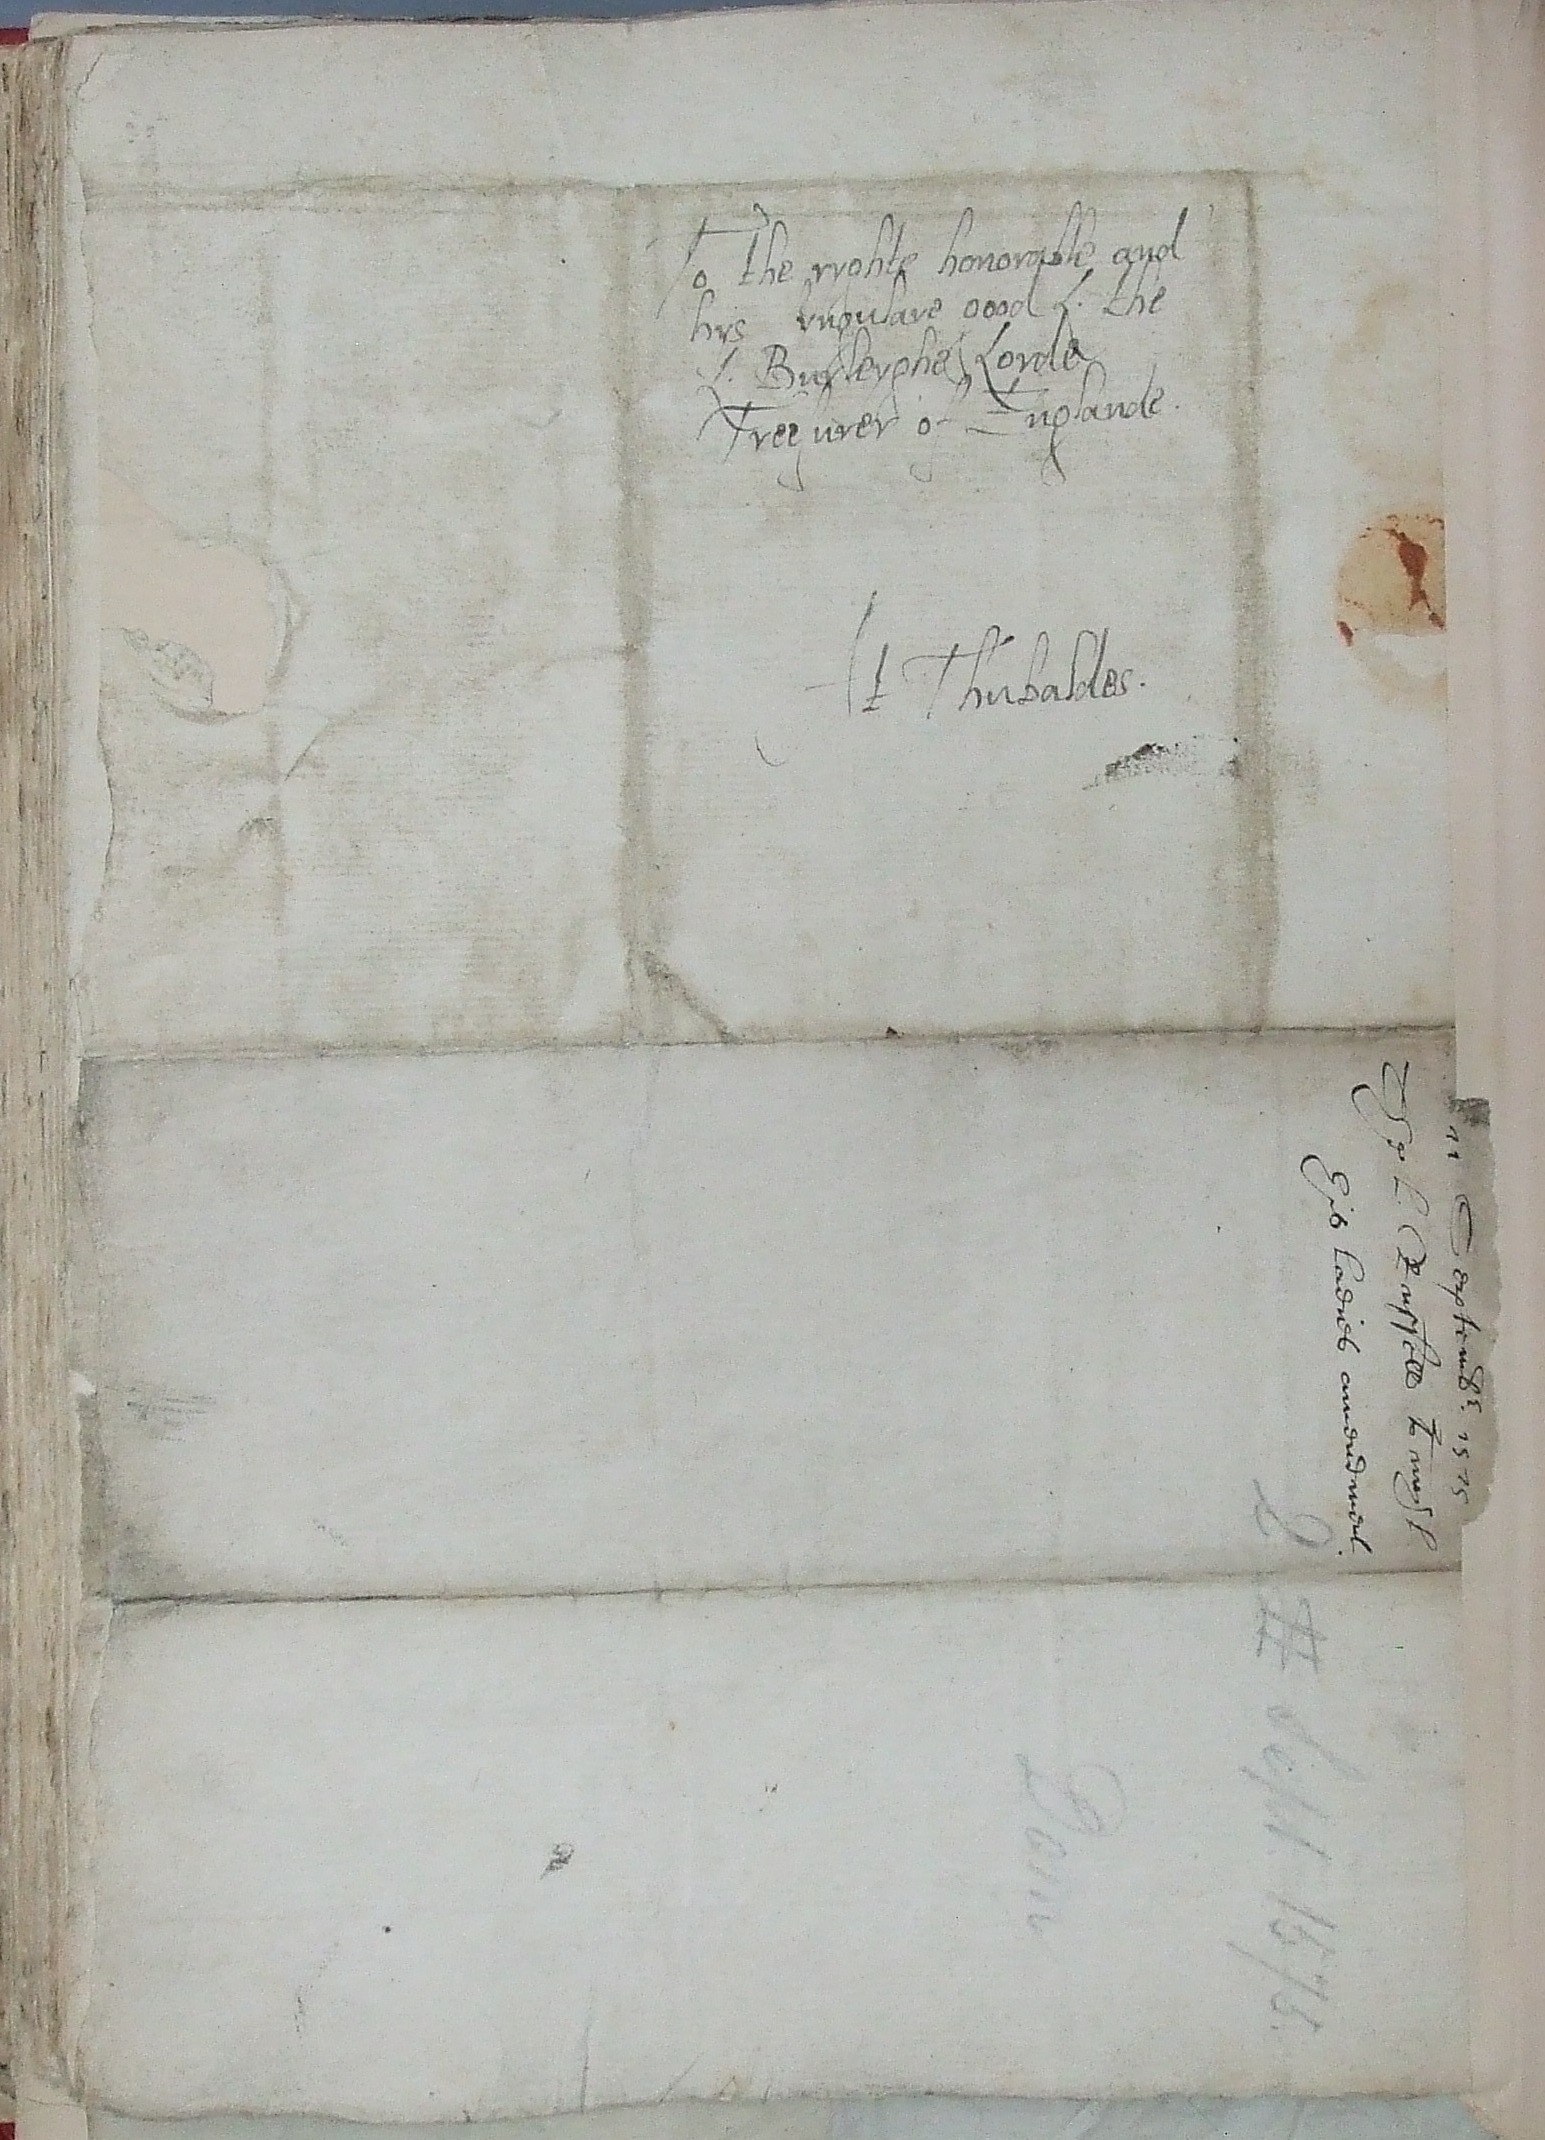 To the ryghte honorable and
hys syngulare good L. the
L. Burleyghe Lorde
Treszurer of Englande.
At Thubaldes.
11 Septemb. 1575
The L. to my L
his Ladies amendment.
Sept 1575
Dom